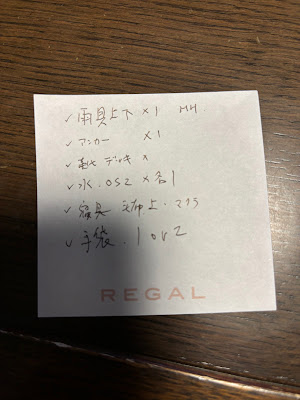 ✓雨具上下 ×1
✓アンカー ×1
✓靴 デッキ ×
✓水.OS2 ×各1
✓寝具 毛布上.マクラ
✓手袋.1 or 2
REGAL